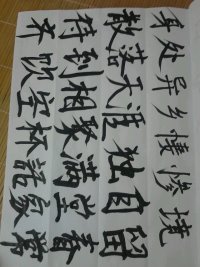 身处异乡悽惨境
散落天涯独自留
待到相聚满堂春
齐吹空杯話家常